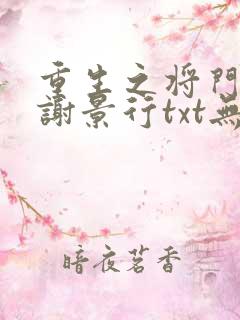 重生之将門
謝景行txt無
暗夜茗香